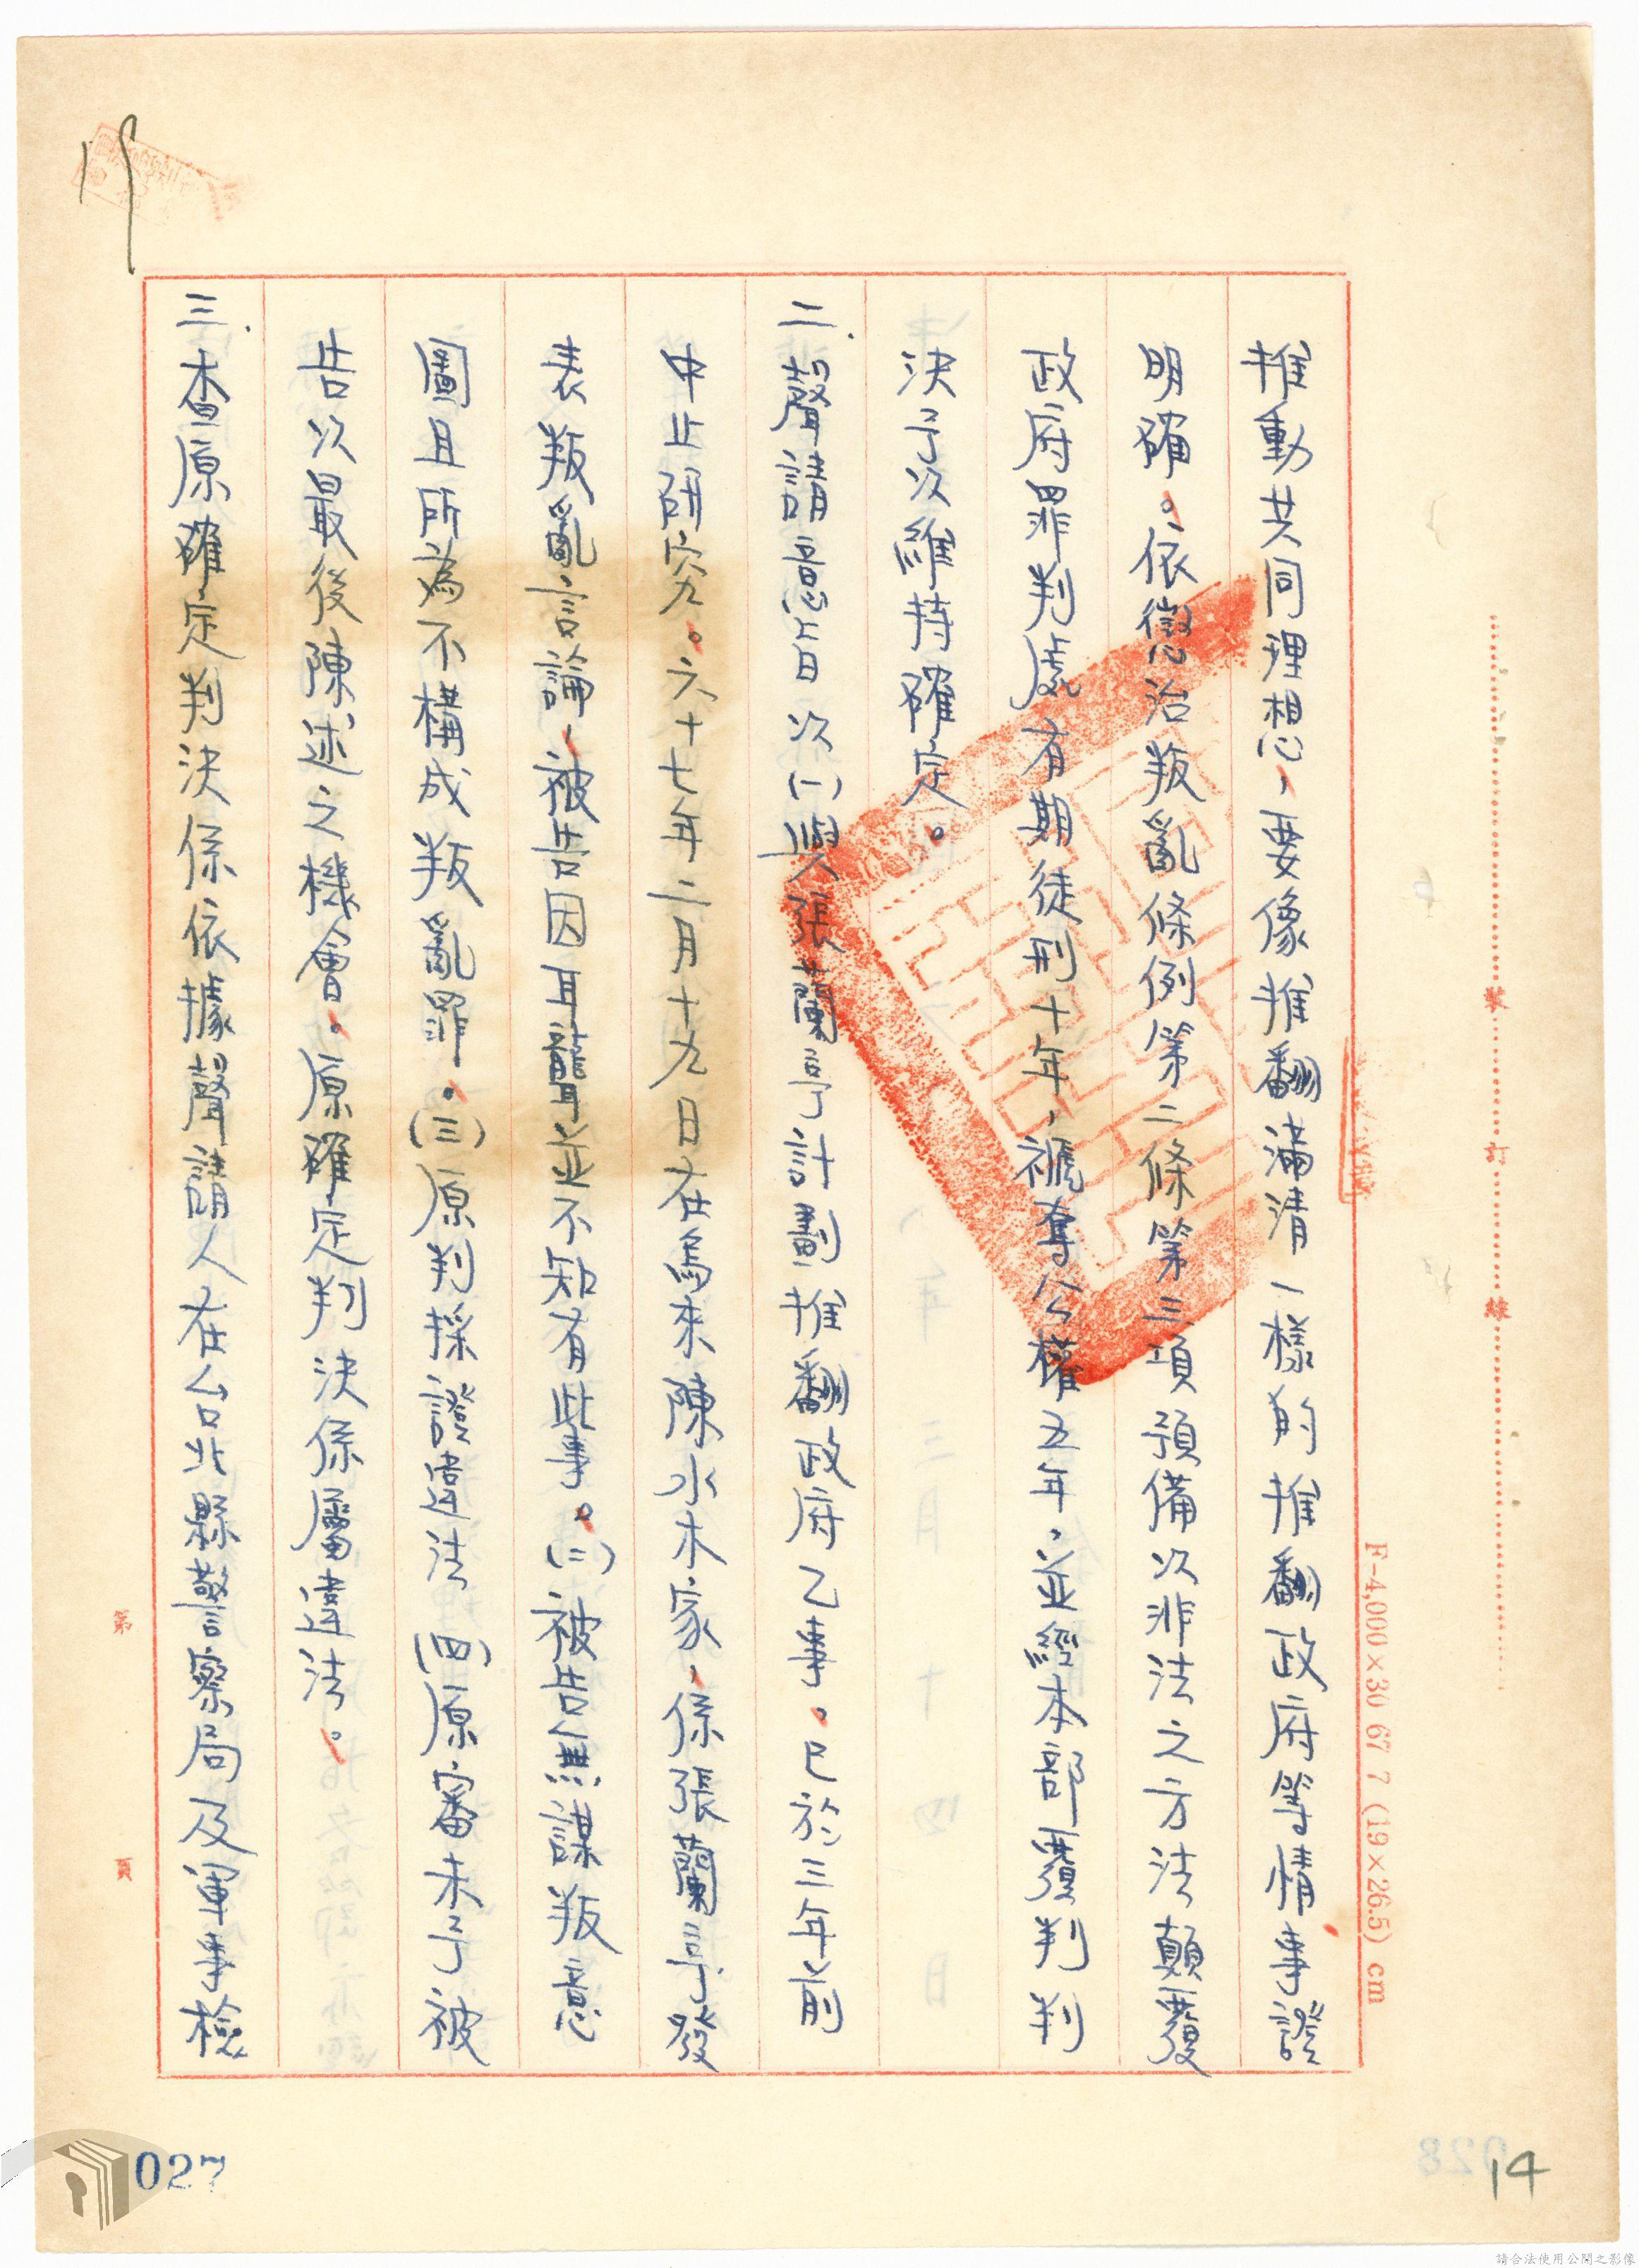 推動共同理想，要像推翻滿清一樣的推翻政府等情事證
明確。依懲治叛亂條例第二條第三項預備以非法之方法顛覆
政府罪判處有期徒刑十年，褫奪公權五年，並經本部覆判判
決予以維持確定。
二.聲請意旨以(一)與張蘭亭計劃推翻政府乙事。已於三年前
中止研究。六十七年二月十九日在烏來陳水木家，係張蘭亭發
表叛亂言論，被告因耳聾並不知有此事。(二)被告無謀叛意
圖且所為不構成叛亂罪。(三)原判採證違法(四)原審未予被
告以最後陳述之機會。原確定判決係屬違法。
三.查原確定判決係依據聲請人在台北縣警察局及軍事檢
第
頁
裝
訂
線
F-4,000×30 67 7 (19×26.5) cm
027
14
請合法使用公開之影像